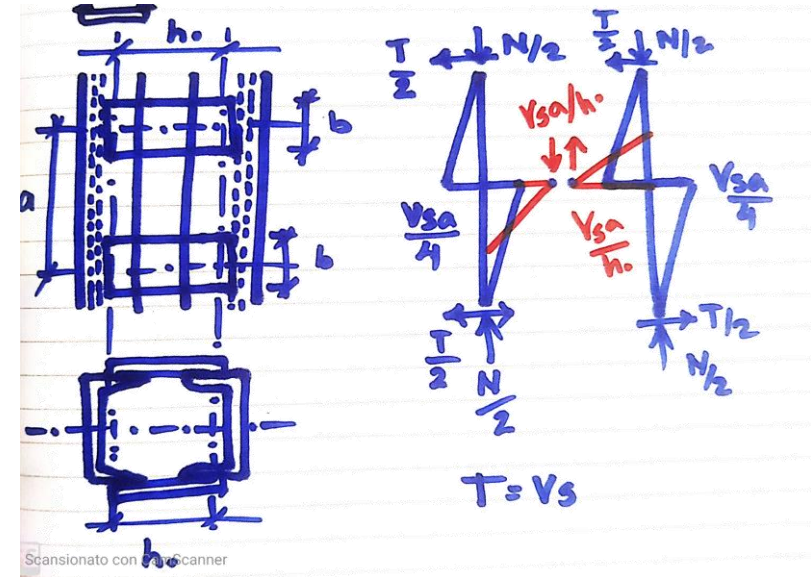 h₀
T/2
N/2
T/2
N/2
Vsa/h₀
b
a
Vsa/4
Vsa/h₀
Vsa/4
b
T/2
N/2
T/2
N/2
T = Vs
h₀
Scansionato con CamScanner